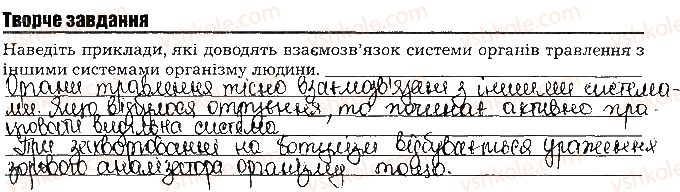 Творче завдання
Наведіть приклади, які доводять взаємозв'язок системи органів травлення з
іншими системами організму людини.
Органи травлення тісно взаємозв'язані з іншими система-
ми. Якщо відбулося отруєння, то починає активно пра-
цювати видільна система
При захворюванні на ботулізм відбувається ураження
зорового аналізатора організму тощо.